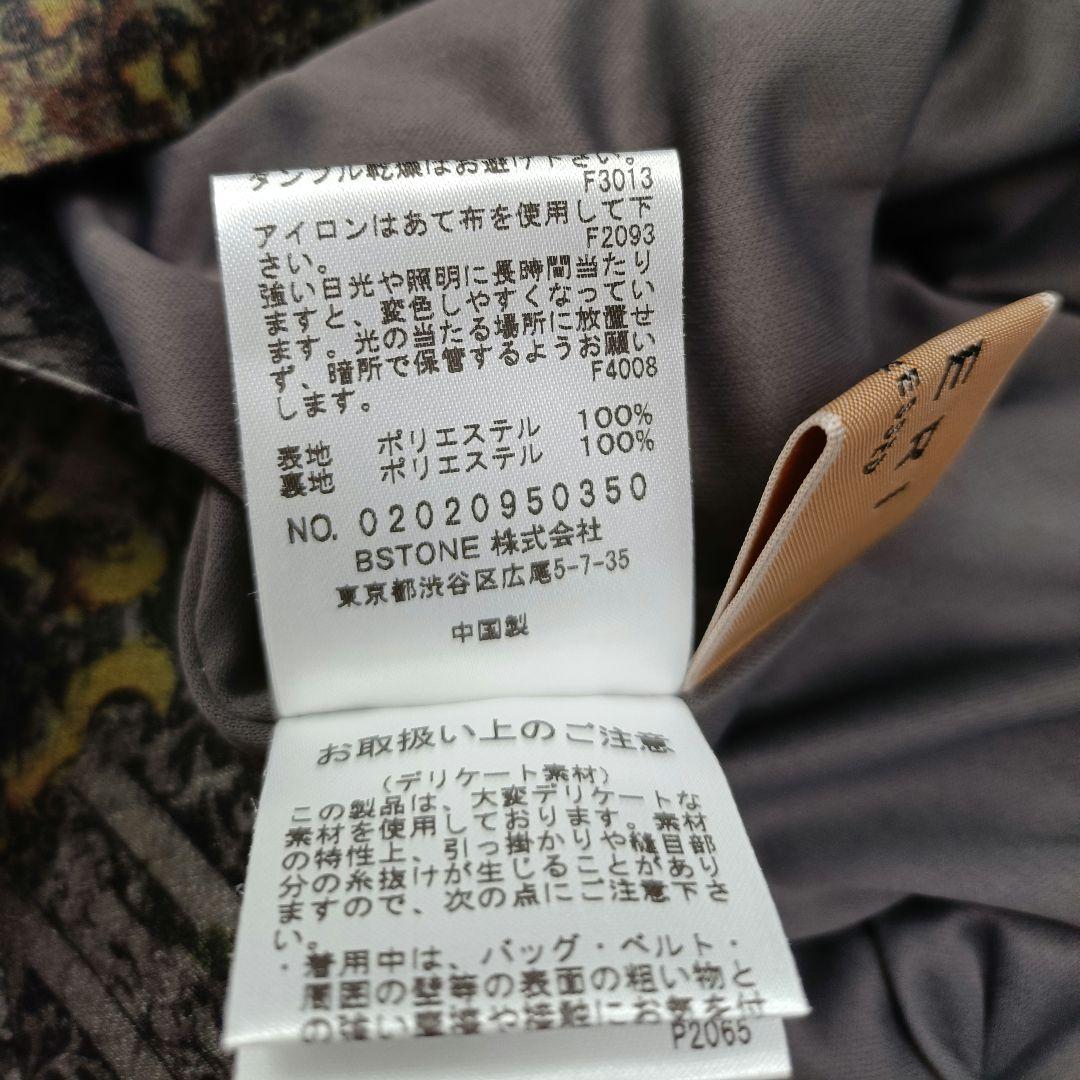 タンブル乾燥はお避け下さい。
F3013
アイロンはあて布を使用して下
F2093
さい。
強い日光や照明に長時間当たり
ますと、変色しやすくなってい
ます。光の当たる場所に放置せ
ず、暗所で保管するようお願い
F4008
します。
表地 ポリエステル 100%
裏地 ポリエステル 100%
NO. 02020950350
BSTONE 株式会社
東京都渋谷区広尾5-7-35
中国製
お取扱い上のご注意
(デリケート素材)
この製品は、大変デリケートな
素材を使用しております。素材
の特性上、引っ掛かりや縫目部
分の糸抜けが生じることがあり
ますので、次の点にご注意下さ
い。
・着用中は、バッグ・ベルト・
周囲の壁等の表面の粗い物と
の強い摩擦や接触にお気を付
P2065